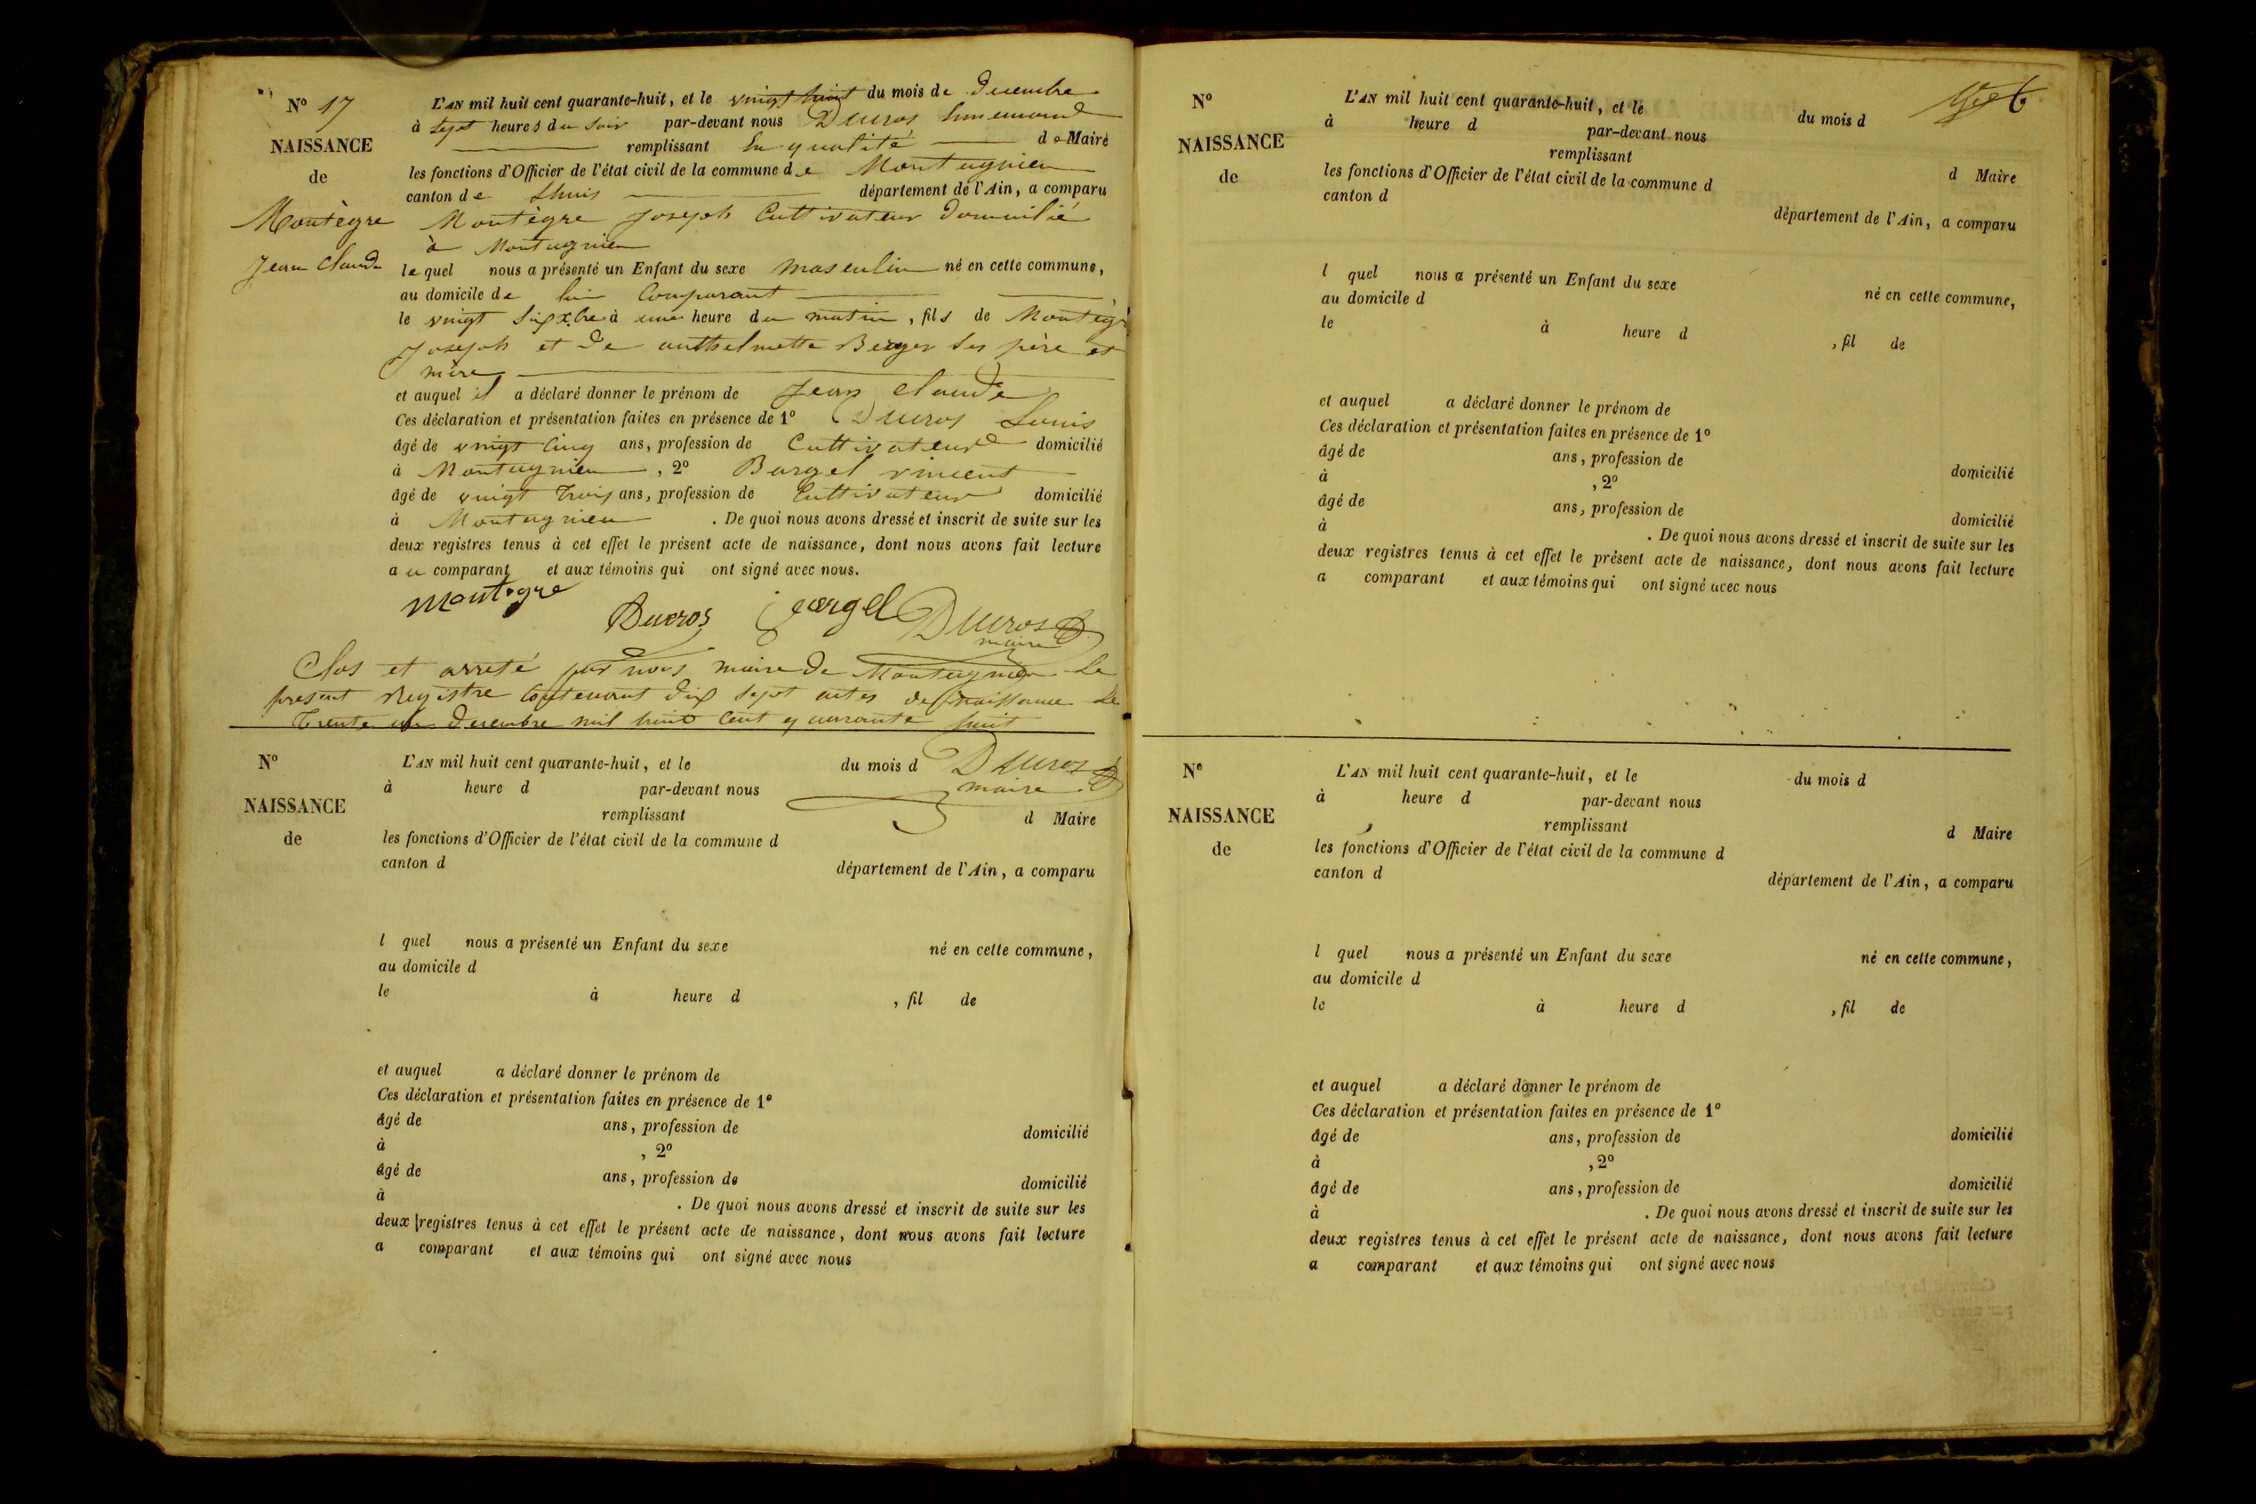 N° 17
NAISSANCE
de
Montègre
Jean Claude
L'AN mil huit cent quarante-huit, et le vingt huit du mois de Decembre
à sept heures du soir par-devant nous Ducros
remplissant En qualité de Maire
les fonctions d'Officier de l'état civil de la commune de Montagnieu
canton de Lhuis département de l'Ain, a comparu
Montègre Joseph Cultivateur Domicilié
à Montagnieu
lequel nous a présenté un Enfant du sexe masculin né en cette commune,
au domicile de lui Comparant
le vingt six xbre à une heure du matin, fils de Montègre
Joseph et de anthelmette Berger ses père et
mère
et auquel il a déclaré donner le prénom de Jean Claude
Ces déclaration et présentation faites en présence de 1° Ducros Louis
âgé de vingt Cinq ans, profession de Cultivateur domicilié
à Montagnieu, 2° vincent
âgé de vingt Trois ans, profession de Cultivateur domicilié
à Montagnieu. De quoi nous avons dressé et inscrit de suite sur les
deux registres tenus à cet effet le présent acte de naissance, dont nous avons fait lecture
au comparant et aux témoins qui ont signé avec nous.
montegre Ducros Ducros
maire
Clos et arreté par nous maire de Montagnieu Le
present Registre Contenant dix sept actes de naissance Le
Trente un Decembre mil huit Cent quarante huit
Ducros
maire
N°
NAISSANCE
de
L'AN mil huit cent quarante-huit, et le du mois d
à heure d par-devant nous
remplissant d Maire
les fonctions d'Officier de l'état civil de la commune d
canton d département de l'Ain, a comparu
l quel nous a présenté un Enfant du sexe né en cette commune,
au domicile d
le à heure d , fil de
et auquel a déclaré donner le prénom de
Ces déclaration et présentation faites en présence de 1°
âgé de ans, profession de domicilié
à , 2°
âgé de ans, profession de domicilié
à . De quoi nous avons dressé et inscrit de suite sur les
deux registres tenus à cet effet le présent acte de naissance, dont nous avons fait lecture
a comparant et aux témoins qui ont signé avec nous
N°
NAISSANCE
de
L'AN mil huit cent quarante-huit, et le du mois d
à heure d par-devant nous
remplissant d Maire
les fonctions d'Officier de l'état civil de la commune d
canton d département de l'Ain, a comparu
l quel nous a présenté un Enfant du sexe né en cette commune,
au domicile d
le à heure d , fil de
et auquel a déclaré donner le prénom de
Ces déclaration et présentation faites en présence de 1°
âgé de ans, profession de domicilié
à , 2°
âgé de ans, profession de domicilié
à . De quoi nous avons dressé et inscrit de suite sur les
deux registres tenus à cet effet le présent acte de naissance, dont nous avons fait lecture
a comparant et aux témoins qui ont signé avec nous
N°
NAISSANCE
de
L'AN mil huit cent quarante-huit, et le du mois d
à heure d par-devant nous
remplissant d Maire
les fonctions d'Officier de l'état civil de la commune d
canton d département de l'Ain, a comparu
l quel nous a présenté un Enfant du sexe né en cette commune,
au domicile d
le à heure d , fil de
et auquel a déclaré donner le prénom de
Ces déclaration et présentation faites en présence de 1°
âgé de ans, profession de domicilié
à , 2°
âgé de ans, profession de domicilié
à . De quoi nous avons dressé et inscrit de suite sur les
deux registres tenus à cet effet le présent acte de naissance, dont nous avons fait lecture
a comparant et aux témoins qui ont signé avec nous